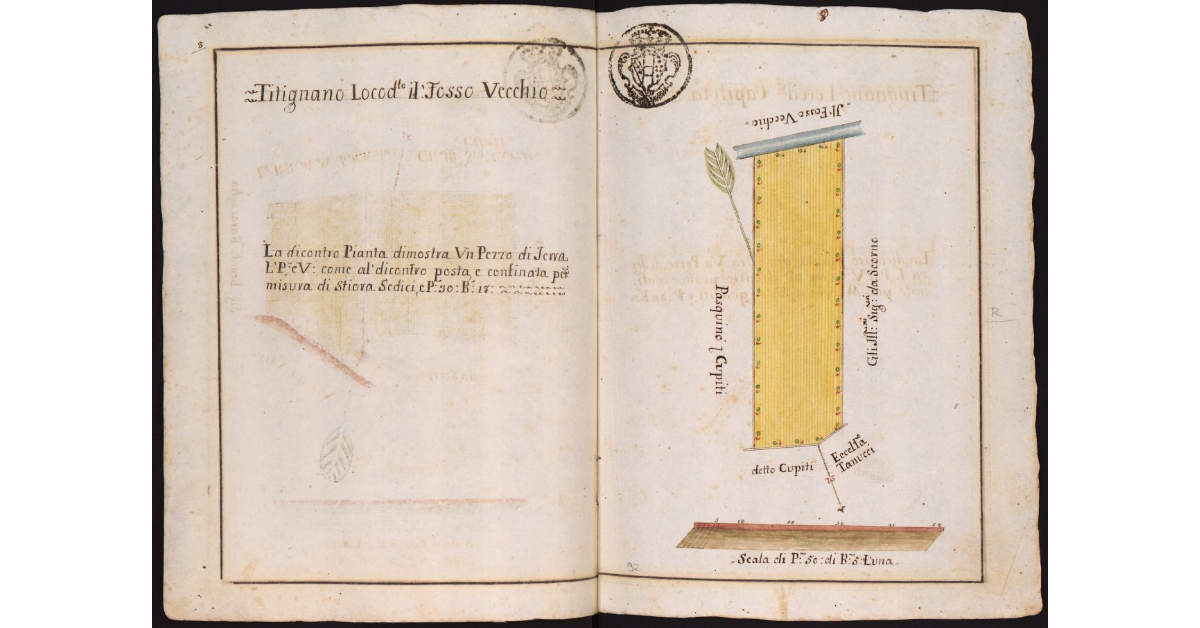 8
Titignano Locod.to il Fosso Vecchio
La dicontro Pianta dimostra Vn Pezzo di Terra
L: P:e V: come al dicontro posta, e confinata per
misura di Stiora Sedici, e P: 30: B: 17:
Il Fosso Vecchio
Pasquino Cupiti
Gli Ill:mi Sig:ri da Scorno
detto Cupiti
Eccell.a
Tanucci
5 10 20 30 40 50
Scala di P: 50: di B: 5: l'una
92
R